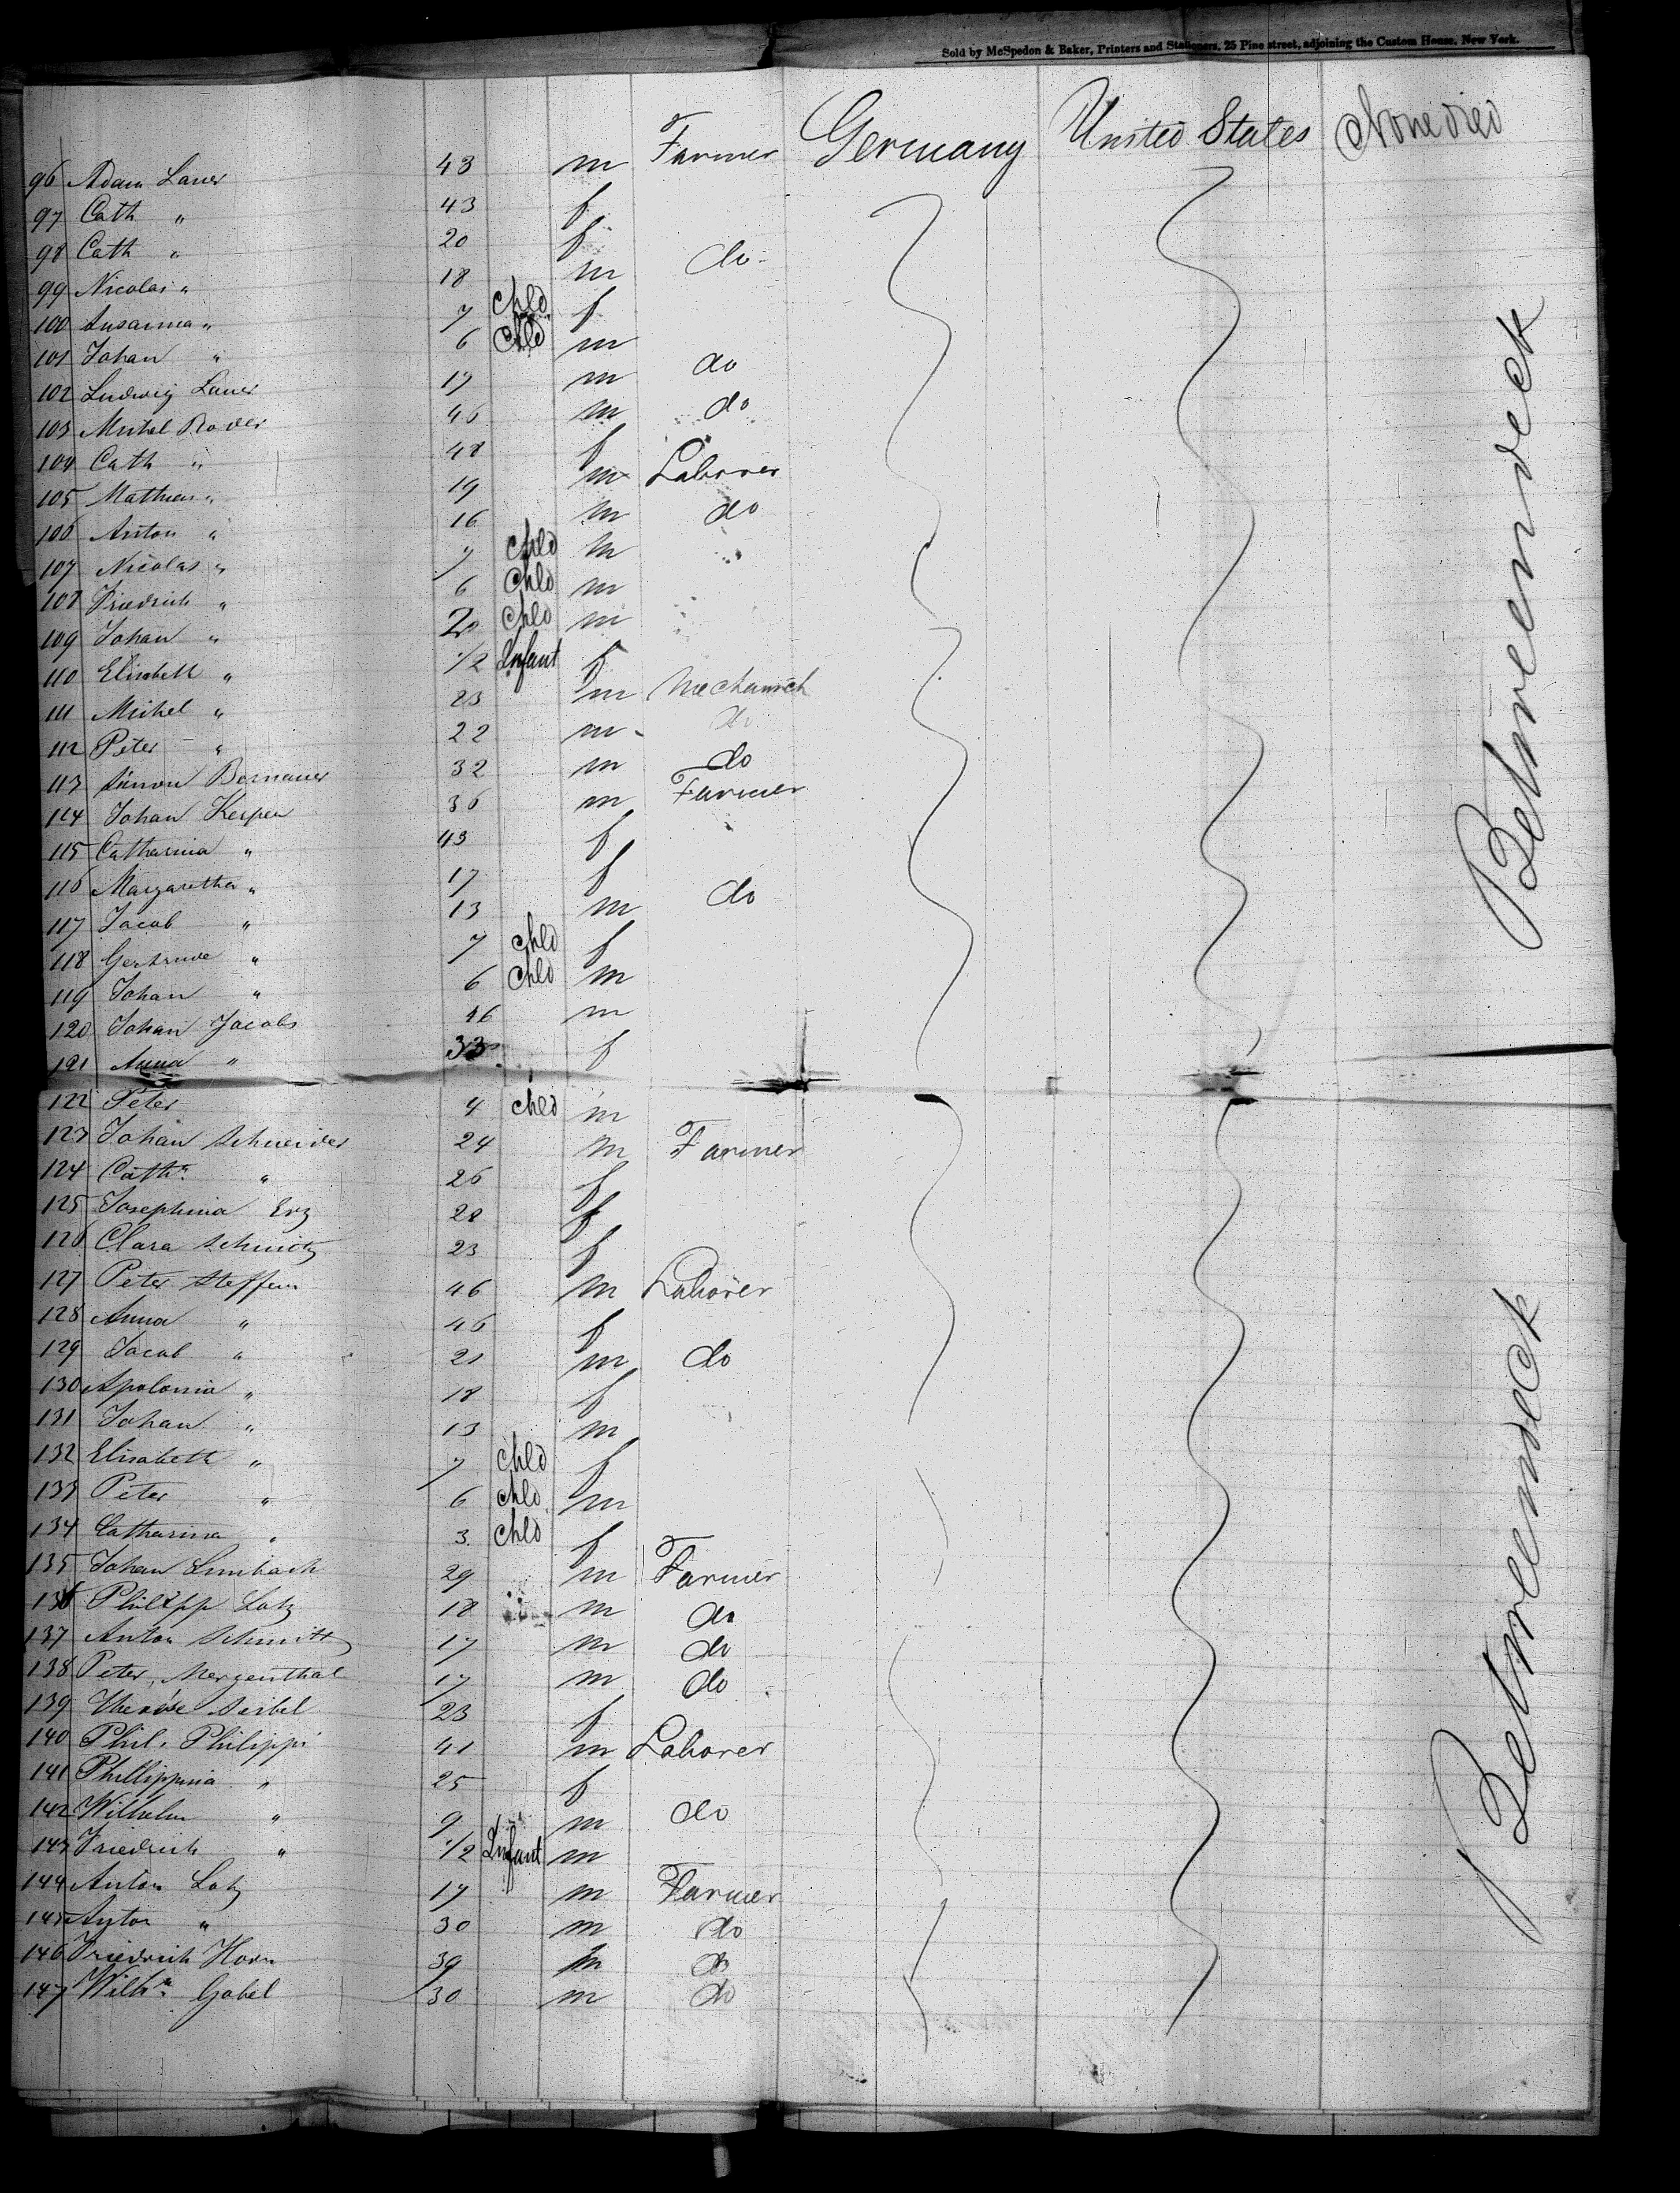 Sold by McSpedon & Baker, Printers and Stationers, 25 Pine street, adjoining the Custom House, New York.
96 Adam Lauer 43 m Farmer Germany United States None died
97 Cath " 43 f
98 Cath " 20 f
99 Nicolas " 18 m do
100 Susanna " 7 Chld f
101 Johan " 6 Chld m
102 Ludwig Lauer 17 m do
103 Michel 46 m do
104 Cath " 48 f
105 Mathias " 19 m Laborer
106 Anton " 16 m do
107 Nicolas " 7 Chld m
108 Friedrich " 6 Chld m
109 Johan " 2 Chld m
110 Elisabeth " 1/2 Infant f
111 Michel " 23 m Mechanich
112 Peter " 22 m do
113 Simon Bernauer 32 m do
114 Johan Kesper 36 m Farmer
115 Catharina " 43 f
116 Margaretha " 17 f
117 Jacob " 13 m do
118 Gertrude " 7 Chld f
119 Johan " 6 Chld m
120 Johan Jacobs 46 m
121 Anna " 33 f
122 Peter 4 Chld m
123 Johan Schneider 24 m Farmer
124 Cath. " 26 f
125 Josephina Erz 28 f
126 Clara Schmitz 23 f
127 Peter Steffen 46 m Laborer
128 Anna " 46 f
129 Jacob " 21 m do
130 Apolonia " 18 f
131 Johan " 13 m
132 Elisabeth " 7 Chld f
133 Peter " 6 Chld m
134 Catharina " 3 Chld f
135 Johan Limbach 29 m Farmer
136 Philipp Lotz 18 m do
137 Anton Schmitt 17 m do
138 Peter Mergenthal 17 m do
139 Therese Seibel 23 f
140 Phil. Philippi 41 m Laborer
141 Phillippina " 25 f
142 Wilhelm " 9 m do
143 Friedrich " 1/2 Infant m
144 Anton Lotz 17 m Farmer
145 Anton " 30 m do
146 Friedrich Horn 39 m do
147 Wilh. Gobel 30 m do
Betweendeck
Betweendeck